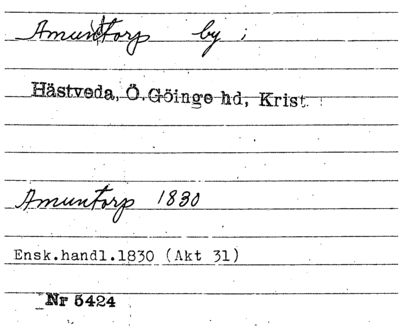 Amuntorp by ;
Hästveda, Ö. Göinge hd, Krist.
Amuntorp 1830
Ensk.handl.1830 (Akt 31)
Nr 5424